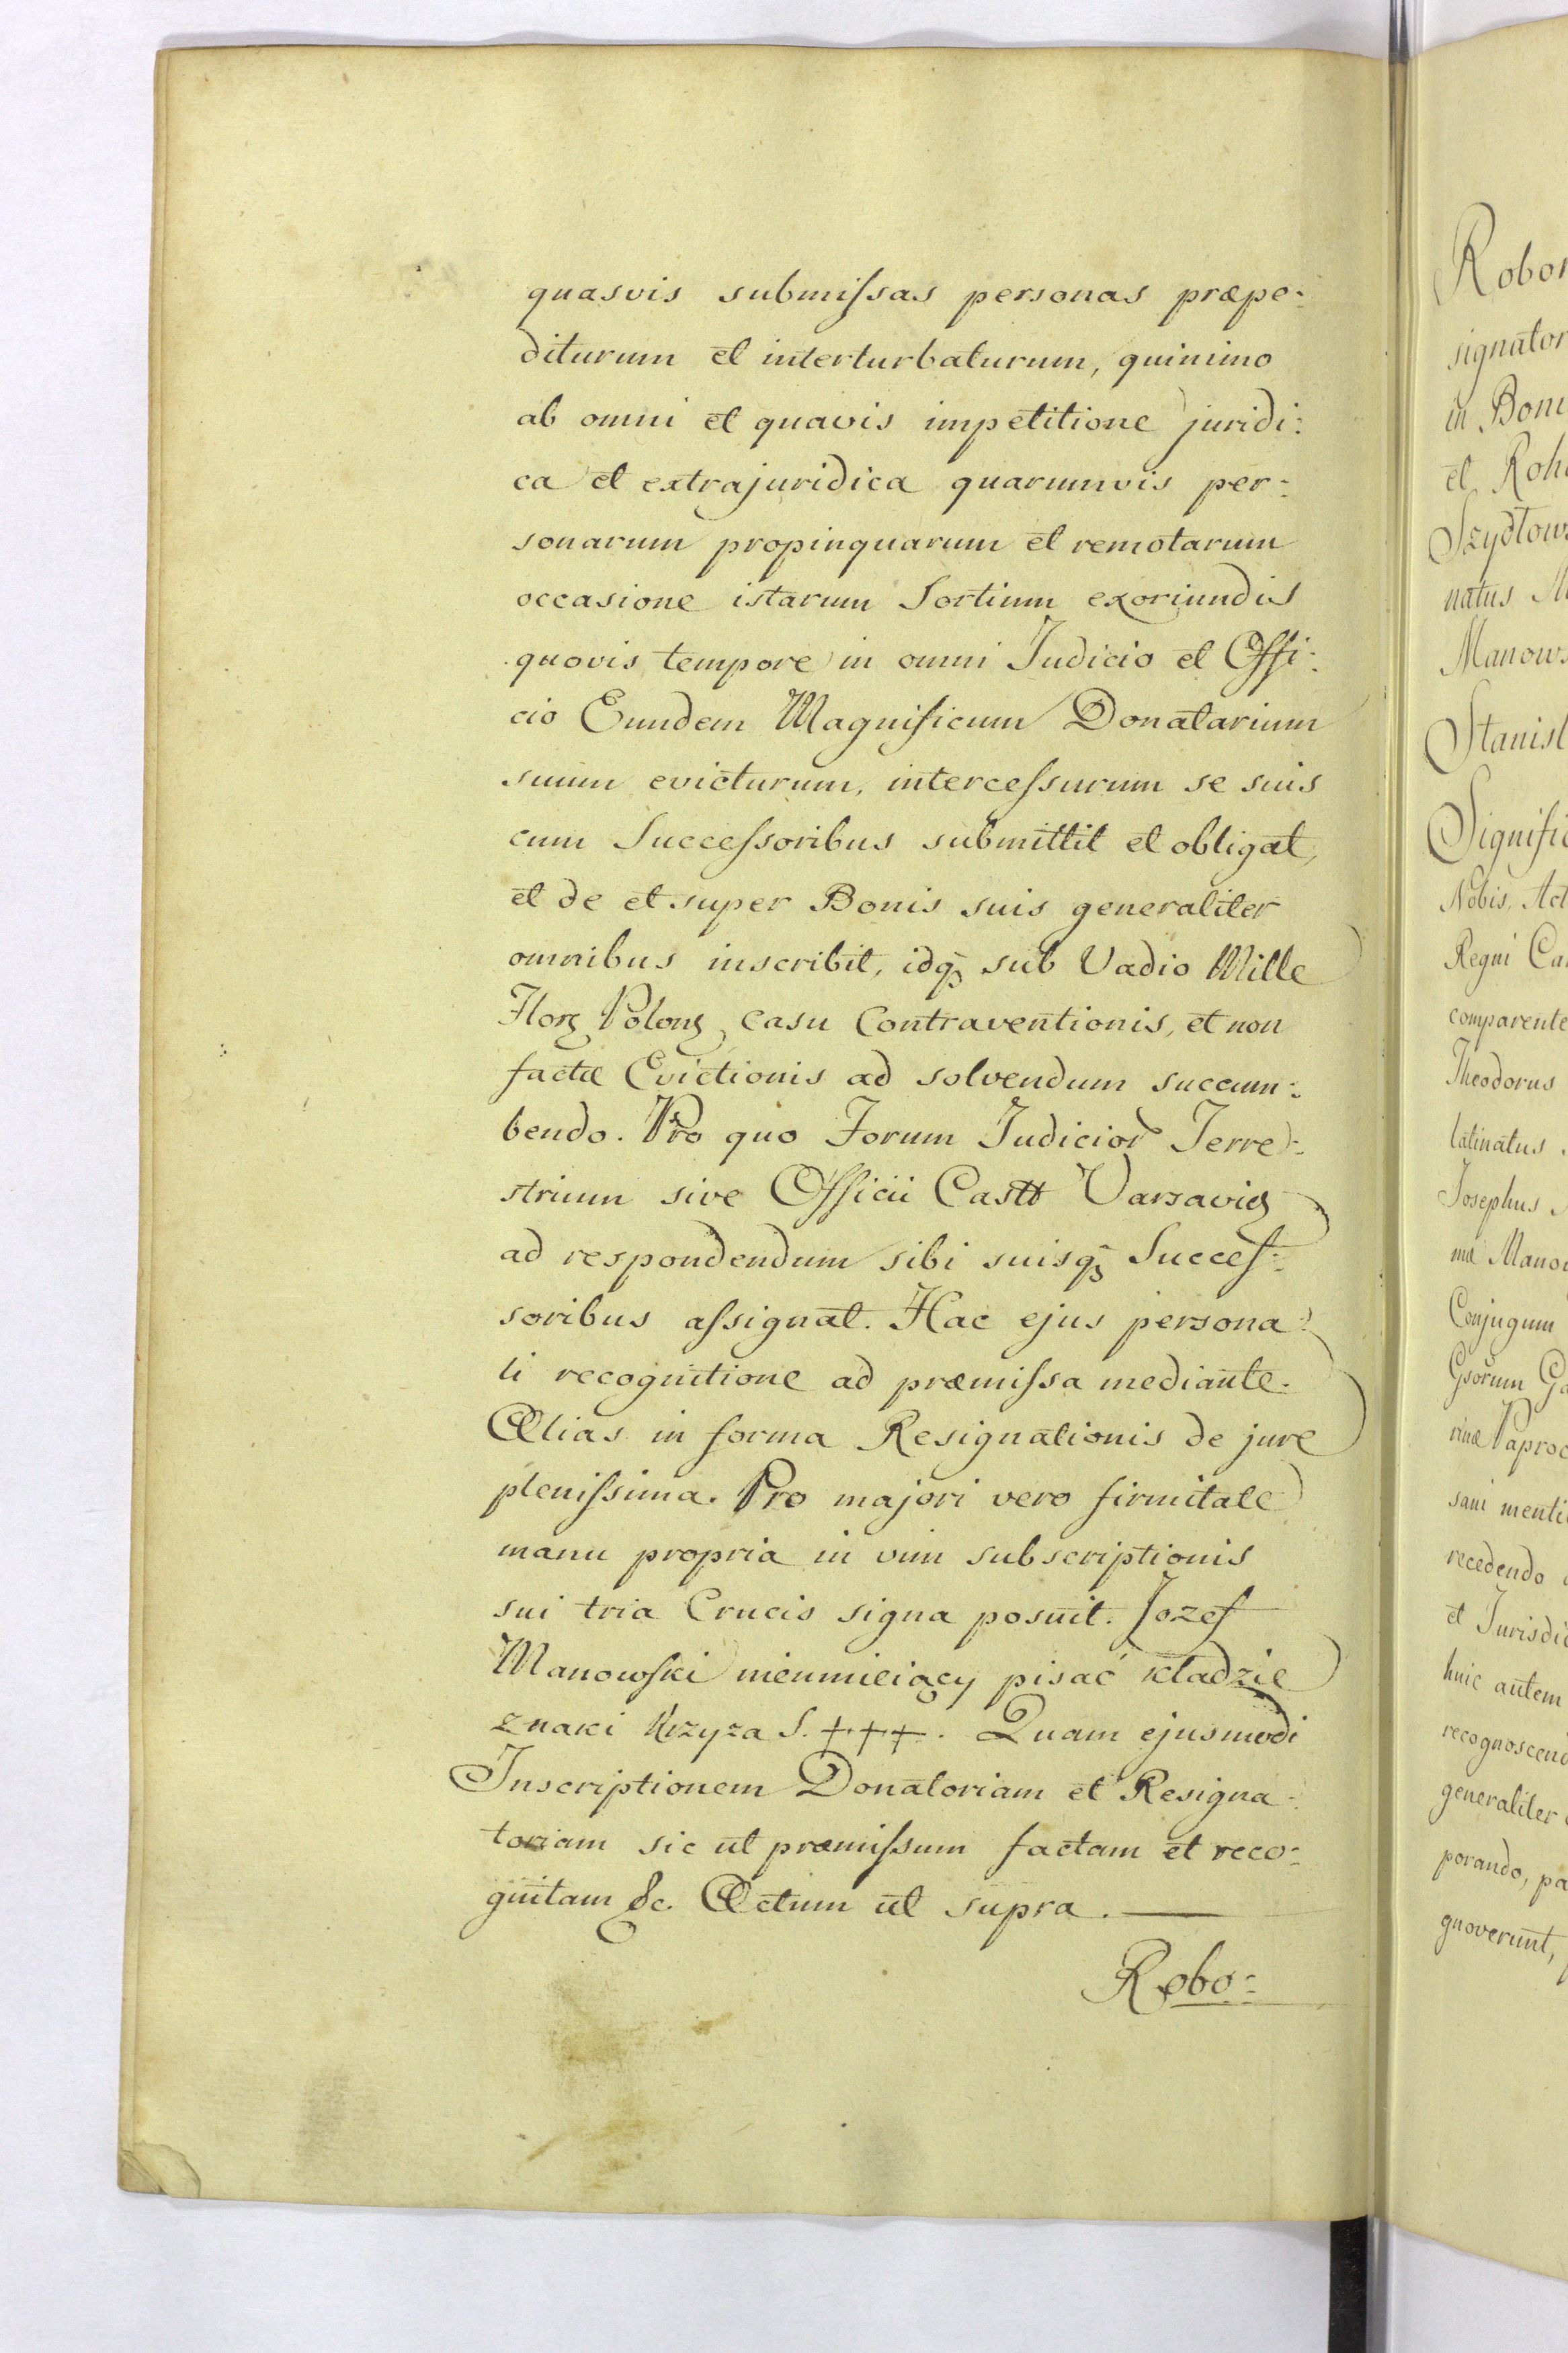 quasvis submiſsas personas præpe:
diturum et interturbaturum, quinimo
ab omni et quavis impetitione juridi:
ca et extrajuridica quarumvis per:
sonarum propinquarum et remotarum
occasione istarum Sortium exoriundis
quovis tempore in omni Judicio et Offi:
cio Eundem Magnificum Donatarium
suum evicturum, interceſsurum se suis
cum Succeſsoribus submittit et obligat,
et de et super Bonis suis generaliter
omnibus inscribit, idqꝫ sub Vadio Mille
Florꝫ Polonꝫ casu Contraventionis, et non
factæ Evictionis ad solvendum succum:
bendo. Pro quo Forum Judicior Terre:
strium sive Officii Castt Varsavieꝫ
ad respondendum sibi suisqꝫ Succeſ:
soribus aſsignat. Hac ejus persona:
li recognitione ad præmiſsa mediante.
Alias in forma Resignationis de jure
pleniſsima. Pro majori vero firmitate
manu propria in vim subscriptionis
sui tria Crucis signa posuit. Jozef
Manowſki nieumieiący pisać kładzie
znaki Krzyza S. +++. Quam ejusmodi
Inscriptionem Donatoriam et Resigna:
toriam sic ut præmiſsum factam et reco:
gnitam &c. Actum ut supra.
Robo:
Robor
signator
in Boni
et Roh
Szydłows
natus M
Manows
Stanisl
Signific
Nobis, Act
Regni Ca
comparente
Theodorus
latinatus
Josephus
mæ Mano
Conjugum
Gsorum G
rinæ Paproc
sani menti
recedendo
et Jurisdic
huic autem
recognoscend
generaliter
porando, pa
gnoverunt,